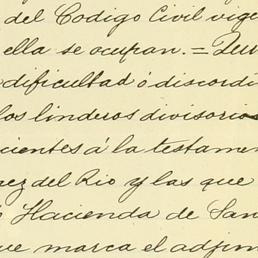 del Codigo Civil vige
ella se ocupan. = Ter
dificultad ó discordi
los linderos divisorios
cientes á la testamen
rez del Rio y las que
Hacienda de San
ue marca el adjun